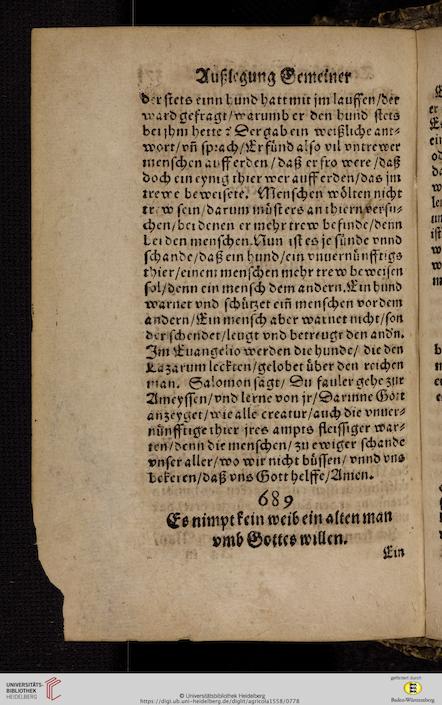 Außlegung Gemeiner
der stets einn hund hatt mit jm lauffen/der
ward gefragt/warumb er den hund stets
bei jhm hette? Der gab ein weißliche ant-
wort/vñ sprach/Er fünd also vil vntrewer
menschen auff erden/daß er fro were/daß
doch ein eynig thier wer auff erden/das jm
trewe beweisete. Menschen wölten nicht
trew sein/darum müsters an thiern versu-
chen/bei denen er mehr trew befinde/denn
bei den menschen. Nun ist es je sünde vnnd
schande/daß ein hund/ein vnuernünfftigs
thier/einem menschen mehr trew beweisen
sol/denn ein mensch dem andern. Ein hund
warnet vnd schützet eiñ menschen vor dem
andern/Ein mensch aber warnet nicht/son
der schendet/leugt vnd betreugt den andn.
Im Euangelio werden die hunde/die den
Lazarum leckten/gelobet über den reichen
man. Salomon sagt/Du fauler gehe zur
Ameyssen/vnd lerne von jr/Darinne Gott
anzeyget/wie alle creatur/auch die vnuer-
nünfftige thier jres ampts fleissiger war-
ten/denn die menschen/zu ewiger schande
vnser aller/wo wir nicht büssen/vnnd vns
bekeren/daß vns Gott helffe/Amen.
689
Es nimpt kein weib ein alten man
vmb Gottes willen.
Ein
UNIVERSITÄTS-
BIBLIOTHEK
HEIDELBERG
© Universitätsbibliothek Heidelberg
https://digi.ub.uni-heidelberg.de/diglit/agricola1558/0778
gefördert durch
Baden-Württemberg